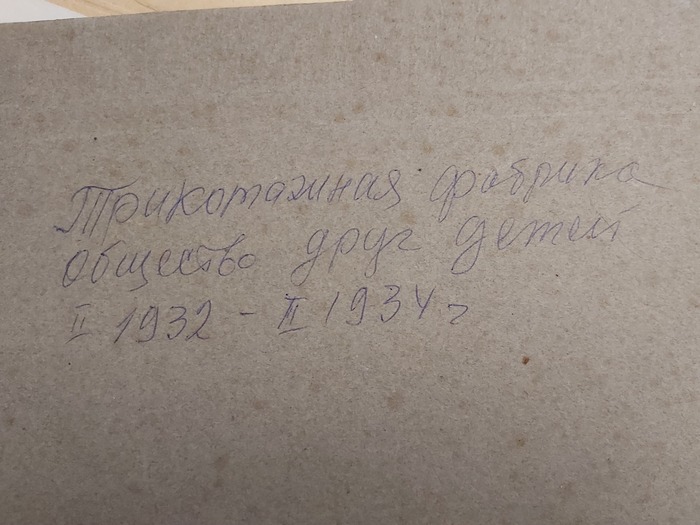 Трикотажная фабрика
общество друг детей
II 1932 - II 1934 г